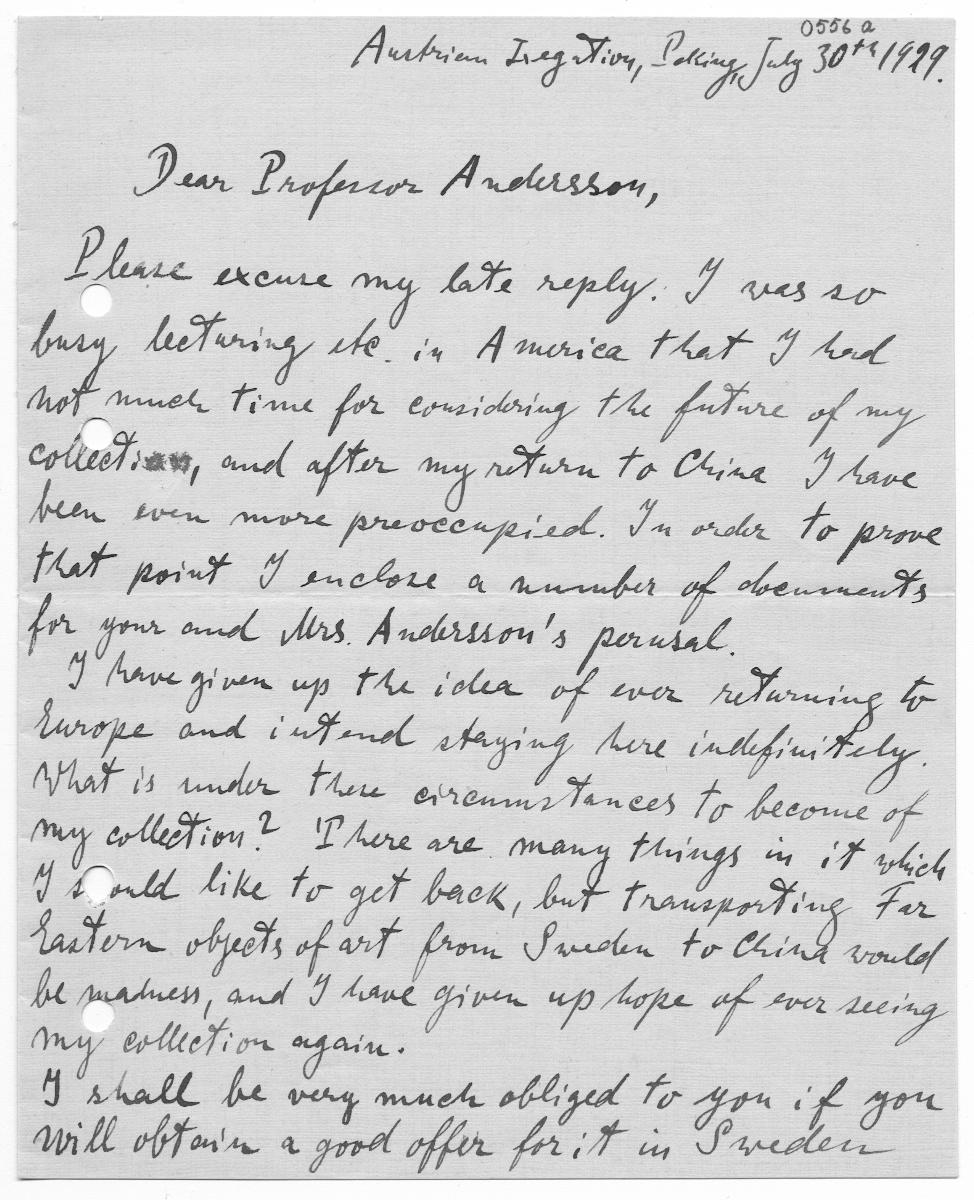 0556 a
Austrian Legation, Peking, July 30th 1929.
Dear Professor Andersson,
Please excuse my late reply. I was so
busy lecturing etc. in America that I had
not much time for considering the future of my
collection, and after my return to China I have
been even more preoccupied. In order to prove
that point I enclose a number of documents
for your and Mrs. Andersson's perusal.
I have given up the idea of ever returning to
Europe and intend staying here indefinitely.
What is under these circumstances to become of
my collection? There are many things in it which
I should like to get back, but transporting Far
Eastern objects of art from Sweden to China would
be madness, and I have given up hope of ever seeing
my collection again.
I shall be very much obliged to you if you
will obtain a good offer for it in Sweden